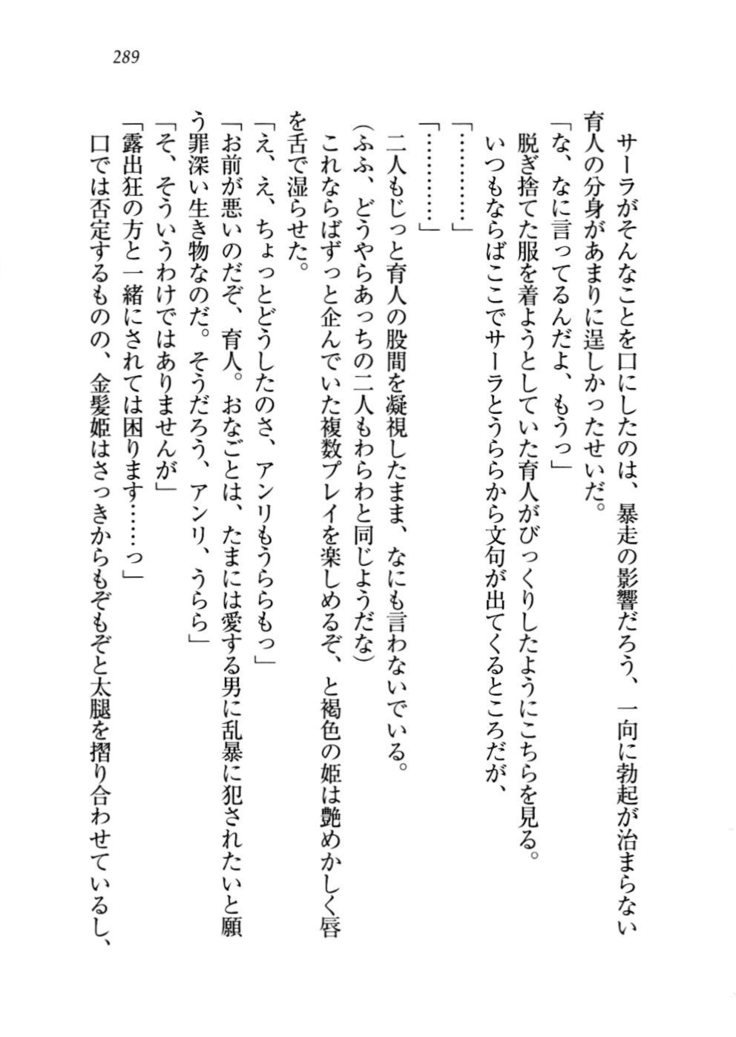 289
サーラがそんなことを口にしたのは、暴走の影響だろう、一向に勃起が治まらない
育人の分身があまりに逞しかったせいだ。
「な、なに言ってるんだよ、もうっ」
脱ぎ捨てた服を着ようとしていた育人がびっくりしたようにこちらを見る。
いつもならばここでサーラとうららから文句が出てくるところだが、
「…………」
「…………」
二人もじっと育人の股間を凝視したまま、なにも言わないでいる。
(ふふ、どうやらあっちの二人もわらわと同じようだな)
これならばずっと企んでいた複数プレイを楽しめるぞ、と褐色の姫は艶めかしく唇
を舌で湿らせた。
「え、え、ちょっとどうしたのさ、アンリもうららもっ」
「お前が悪いのだぞ、育人。おなごとは、たまには愛する男に乱暴に犯されたいと願
う罪深い生き物なのだ。そうだろう、アンリ、うらら」
「そ、そういうわけではありませんが」
「露出狂の方と一緒にされては困ります……っ」
口では否定するものの、金髪姫はさっきからもぞもぞと太腿を摺り合わせているし、